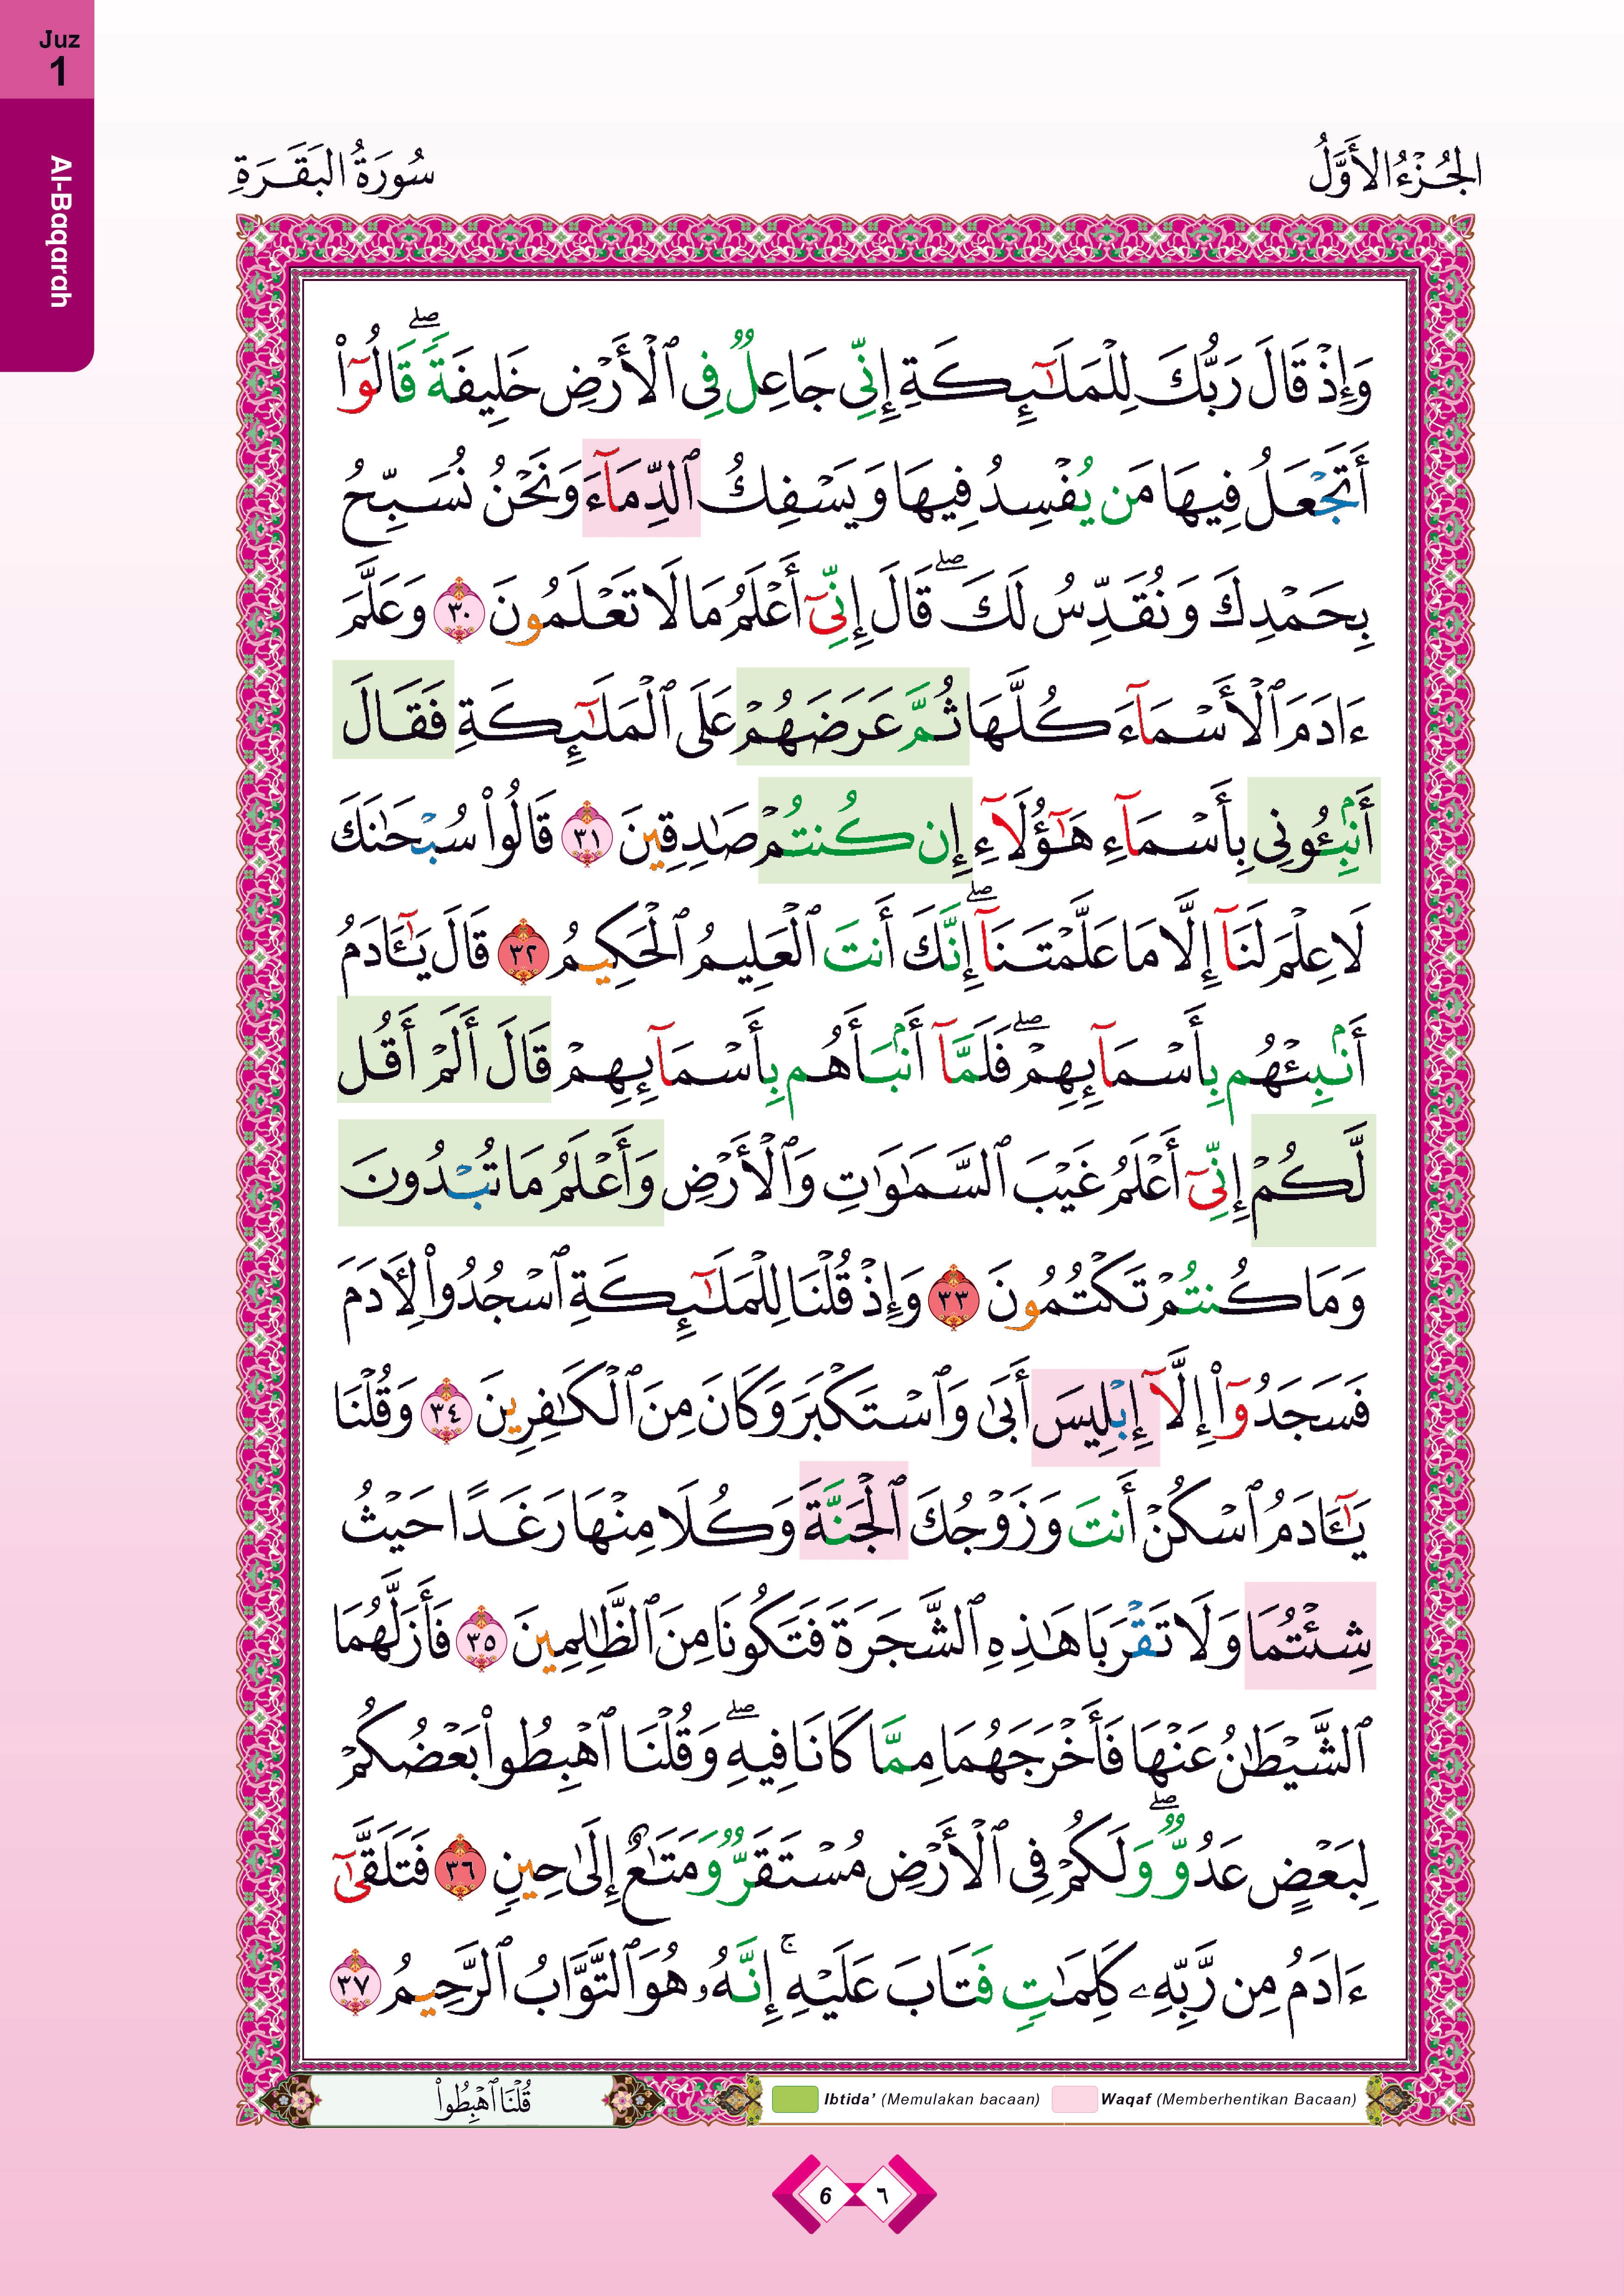 Juz
1
Al-Baqarah
الجُزْءُ الأَوَّلُ
سُورَةُ البَقَرَةِ
وَإِذْ قَالَ رَبُّكَ لِلْمَلَـٰٓئِكَةِ إِنِّى جَاعِلٌ فِى ٱلْأَرْضِ خَلِيفَةً ۖ قَالُوٓا۟
أَتَجْعَلُ فِيهَا مَن يُفْسِدُ فِيهَا وَيَسْفِكُ ٱلدِّمَآءَ وَنَحْنُ نُسَبِّحُ
بِحَمْدِكَ وَنُقَدِّسُ لَكَ ۖ قَالَ إِنِّىٓ أَعْلَمُ مَا لَا تَعْلَمُونَ ٣٠ وَعَلَّمَ
ءَادَمَ ٱلْأَسْمَآءَ كُلَّهَا ثُمَّ عَرَضَهُمْ عَلَى ٱلْمَلَـٰٓئِكَةِ فَقَالَ
أَنۢبِـُٔونِى بِأَسْمَآءِ هَـٰٓؤُلَآءِ إِن كُنتُمْ صَـٰدِقِينَ ٣١ قَالُوا۟ سُبْحَـٰنَكَ
لَا عِلْمَ لَنَآ إِلَّا مَا عَلَّمْتَنَآ ۖ إِنَّكَ أَنتَ ٱلْعَلِيمُ ٱلْحَكِيمُ ٣٢ قَالَ يَـٰٓـَٔادَمُ
أَنۢبِئْهُم بِأَسْمَآئِهِمْ ۖ فَلَمَّآ أَنۢبَأَهُم بِأَسْمَآئِهِمْ قَالَ أَلَمْ أَقُل
لَّكُمْ إِنِّىٓ أَعْلَمُ غَيْبَ ٱلسَّمَـٰوَٰتِ وَٱلْأَرْضِ وَأَعْلَمُ مَا تُبْدُونَ
وَمَا كُنتُمْ تَكْتُمُونَ ٣٣ وَإِذْ قُلْنَا لِلْمَلَـٰٓئِكَةِ ٱسْجُدُوا۟ لِـَٔادَمَ
فَسَجَدُوٓا۟ إِلَّآ إِبْلِيسَ أَبَىٰ وَٱسْتَكْبَرَ وَكَانَ مِنَ ٱلْكَـٰفِرِينَ ٣٤ وَقُلْنَا
يَـٰٓـَٔادَمُ ٱسْكُنْ أَنتَ وَزَوْجُكَ ٱلْجَنَّةَ وَكُلَا مِنْهَا رَغَدًا حَيْثُ
شِئْتُمَا وَلَا تَقْرَبَا هَـٰذِهِ ٱلشَّجَرَةَ فَتَكُونَا مِنَ ٱلظَّـٰلِمِينَ ٣٥ فَأَزَلَّهُمَا
ٱلشَّيْطَـٰنُ عَنْهَا فَأَخْرَجَهُمَا مِمَّا كَانَا فِيهِ ۖ وَقُلْنَا ٱهْبِطُوا۟ بَعْضُكُمْ
لِبَعْضٍ عَدُوٌّ ۖ وَلَكُمْ فِى ٱلْأَرْضِ مُسْتَقَرٌّ وَمَتَـٰعٌ إِلَىٰ حِينٍ ٣٦ فَتَلَقَّىٰٓ
ءَادَمُ مِن رَّبِّهِۦ كَلِمَـٰتٍ فَتَابَ عَلَيْهِ ۚ إِنَّهُۥ هُوَ ٱلتَّوَّابُ ٱلرَّحِيمُ ٣٧
قُلْنَا ٱهْبِطُوا۟
Ibtida' (Memulakan bacaan)
Waqaf (Memberhentikan Bacaan)
6 ٦